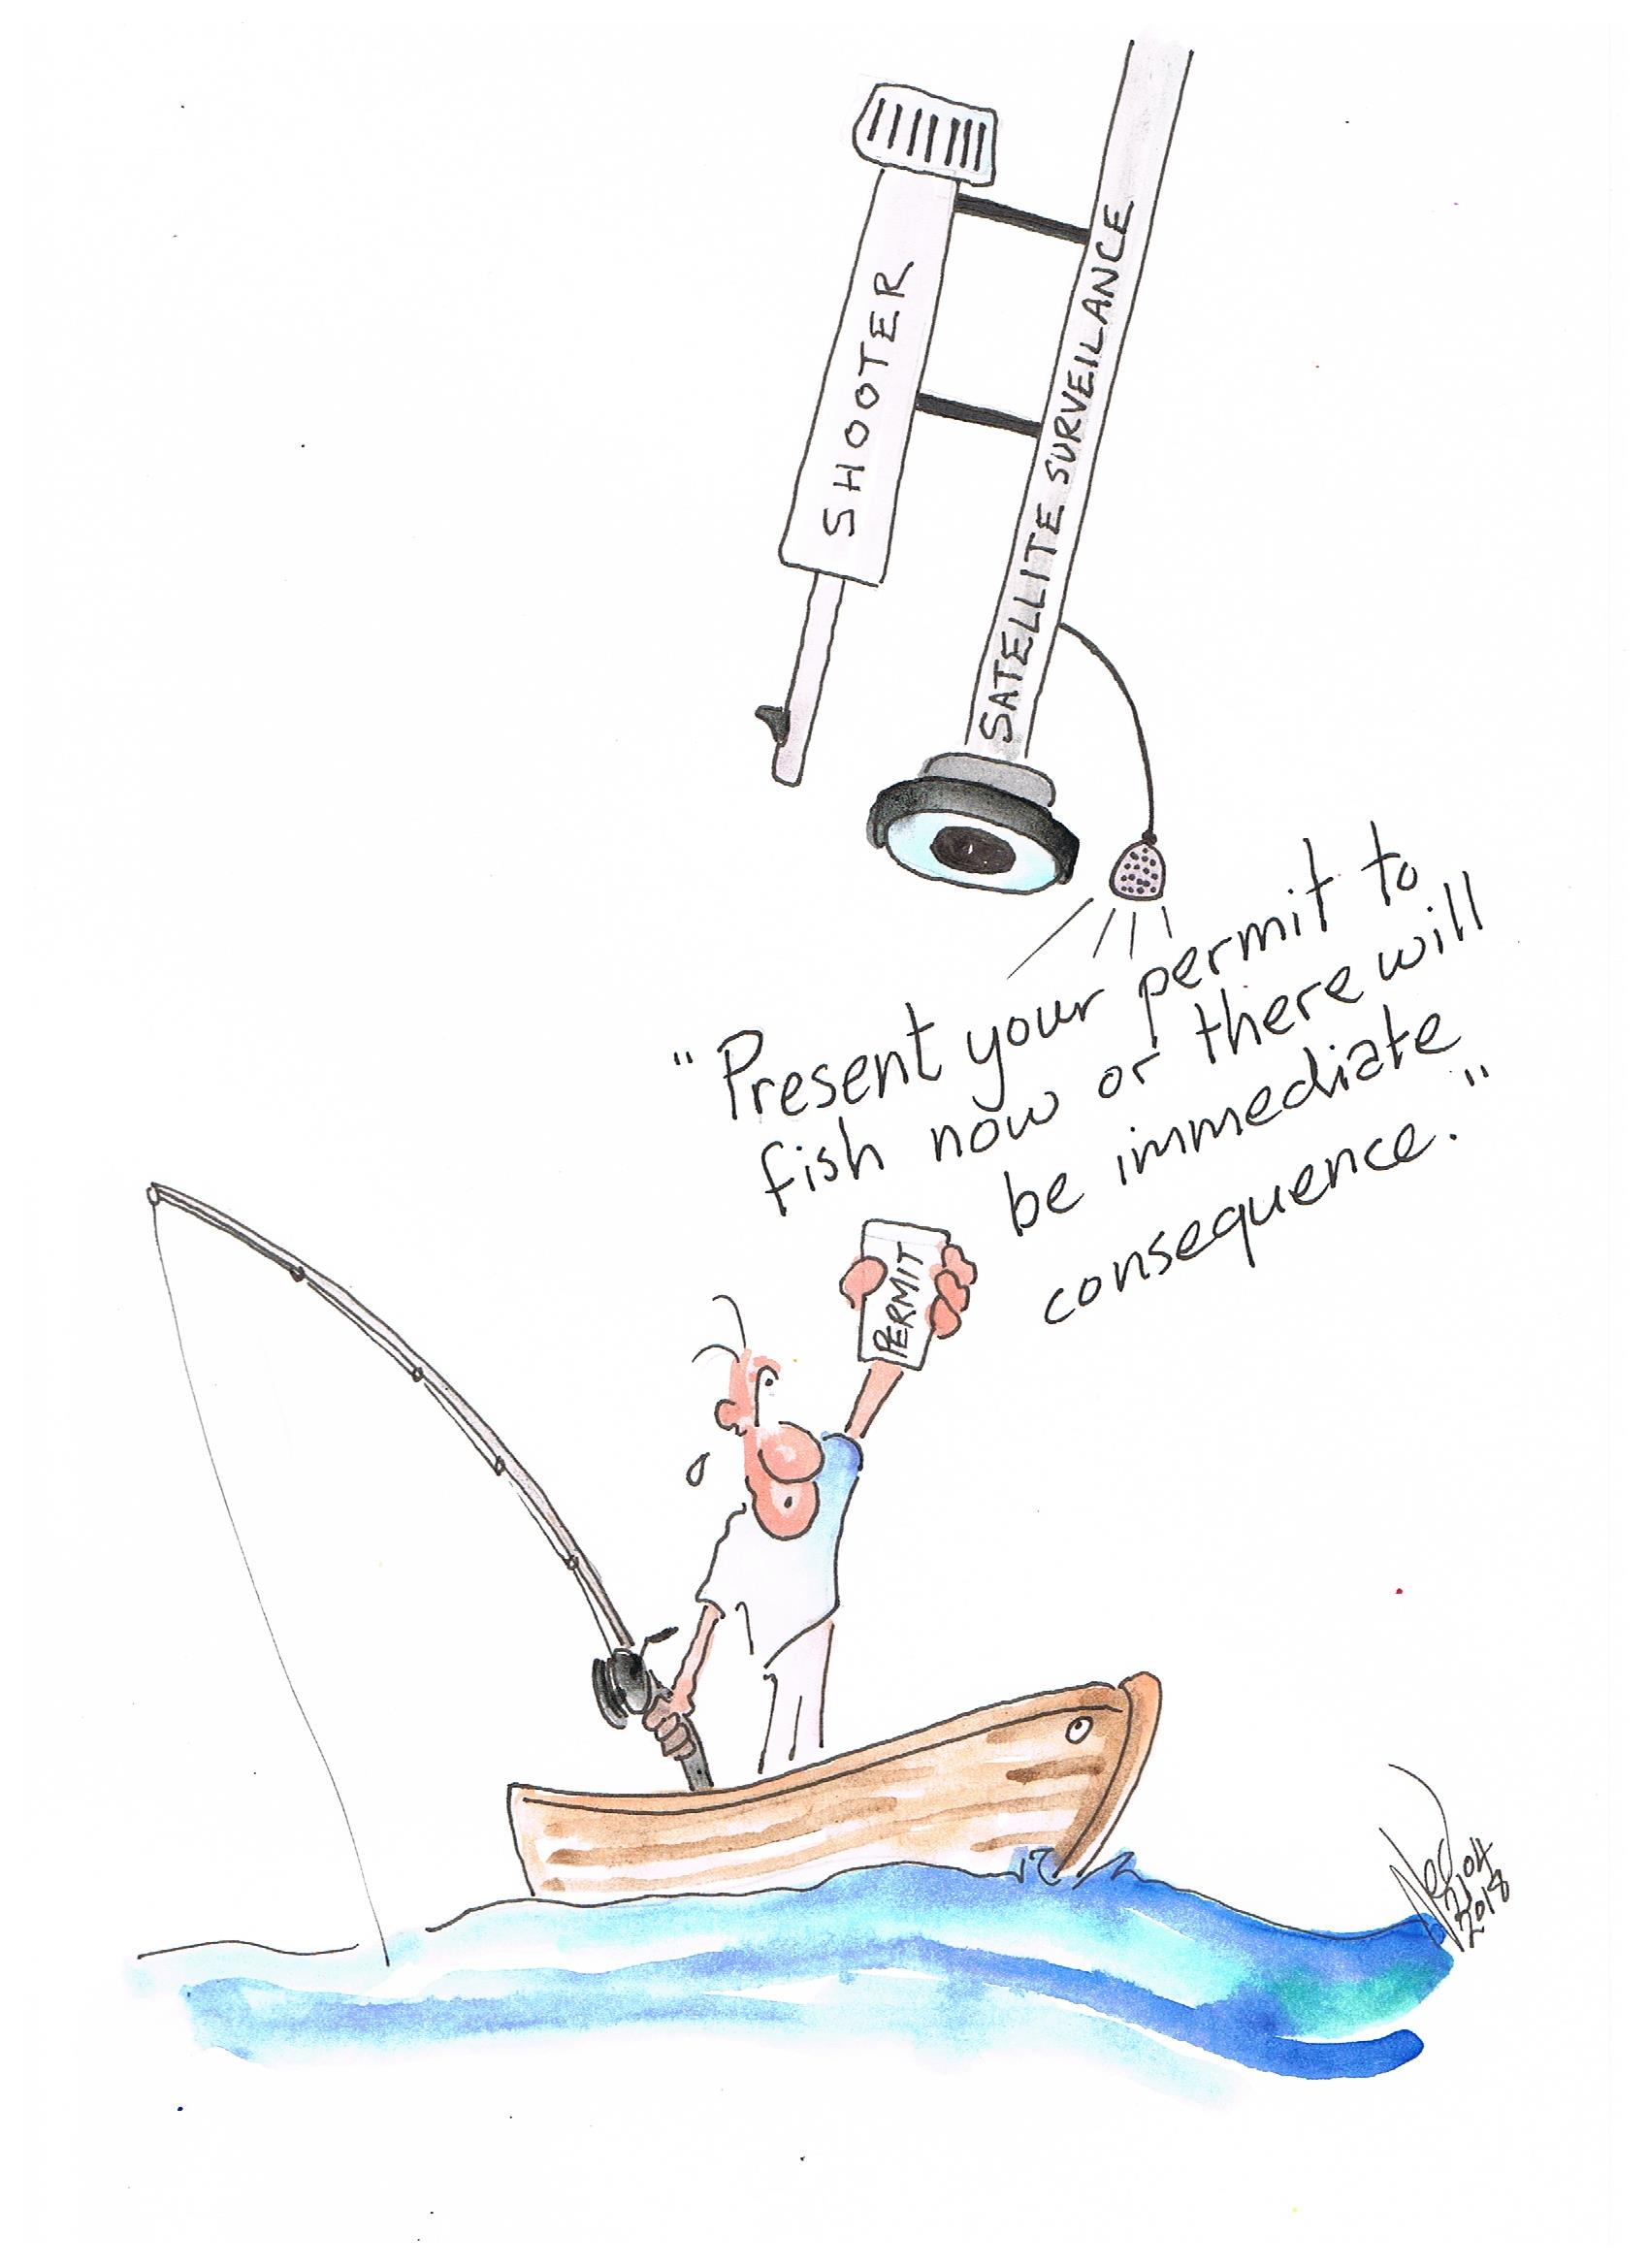 SHOOTER
SATELLITE SURVEILANCE
"Present your permit to
fish now or there will
be immediate
consequence."
PERMIT
21 04
2018